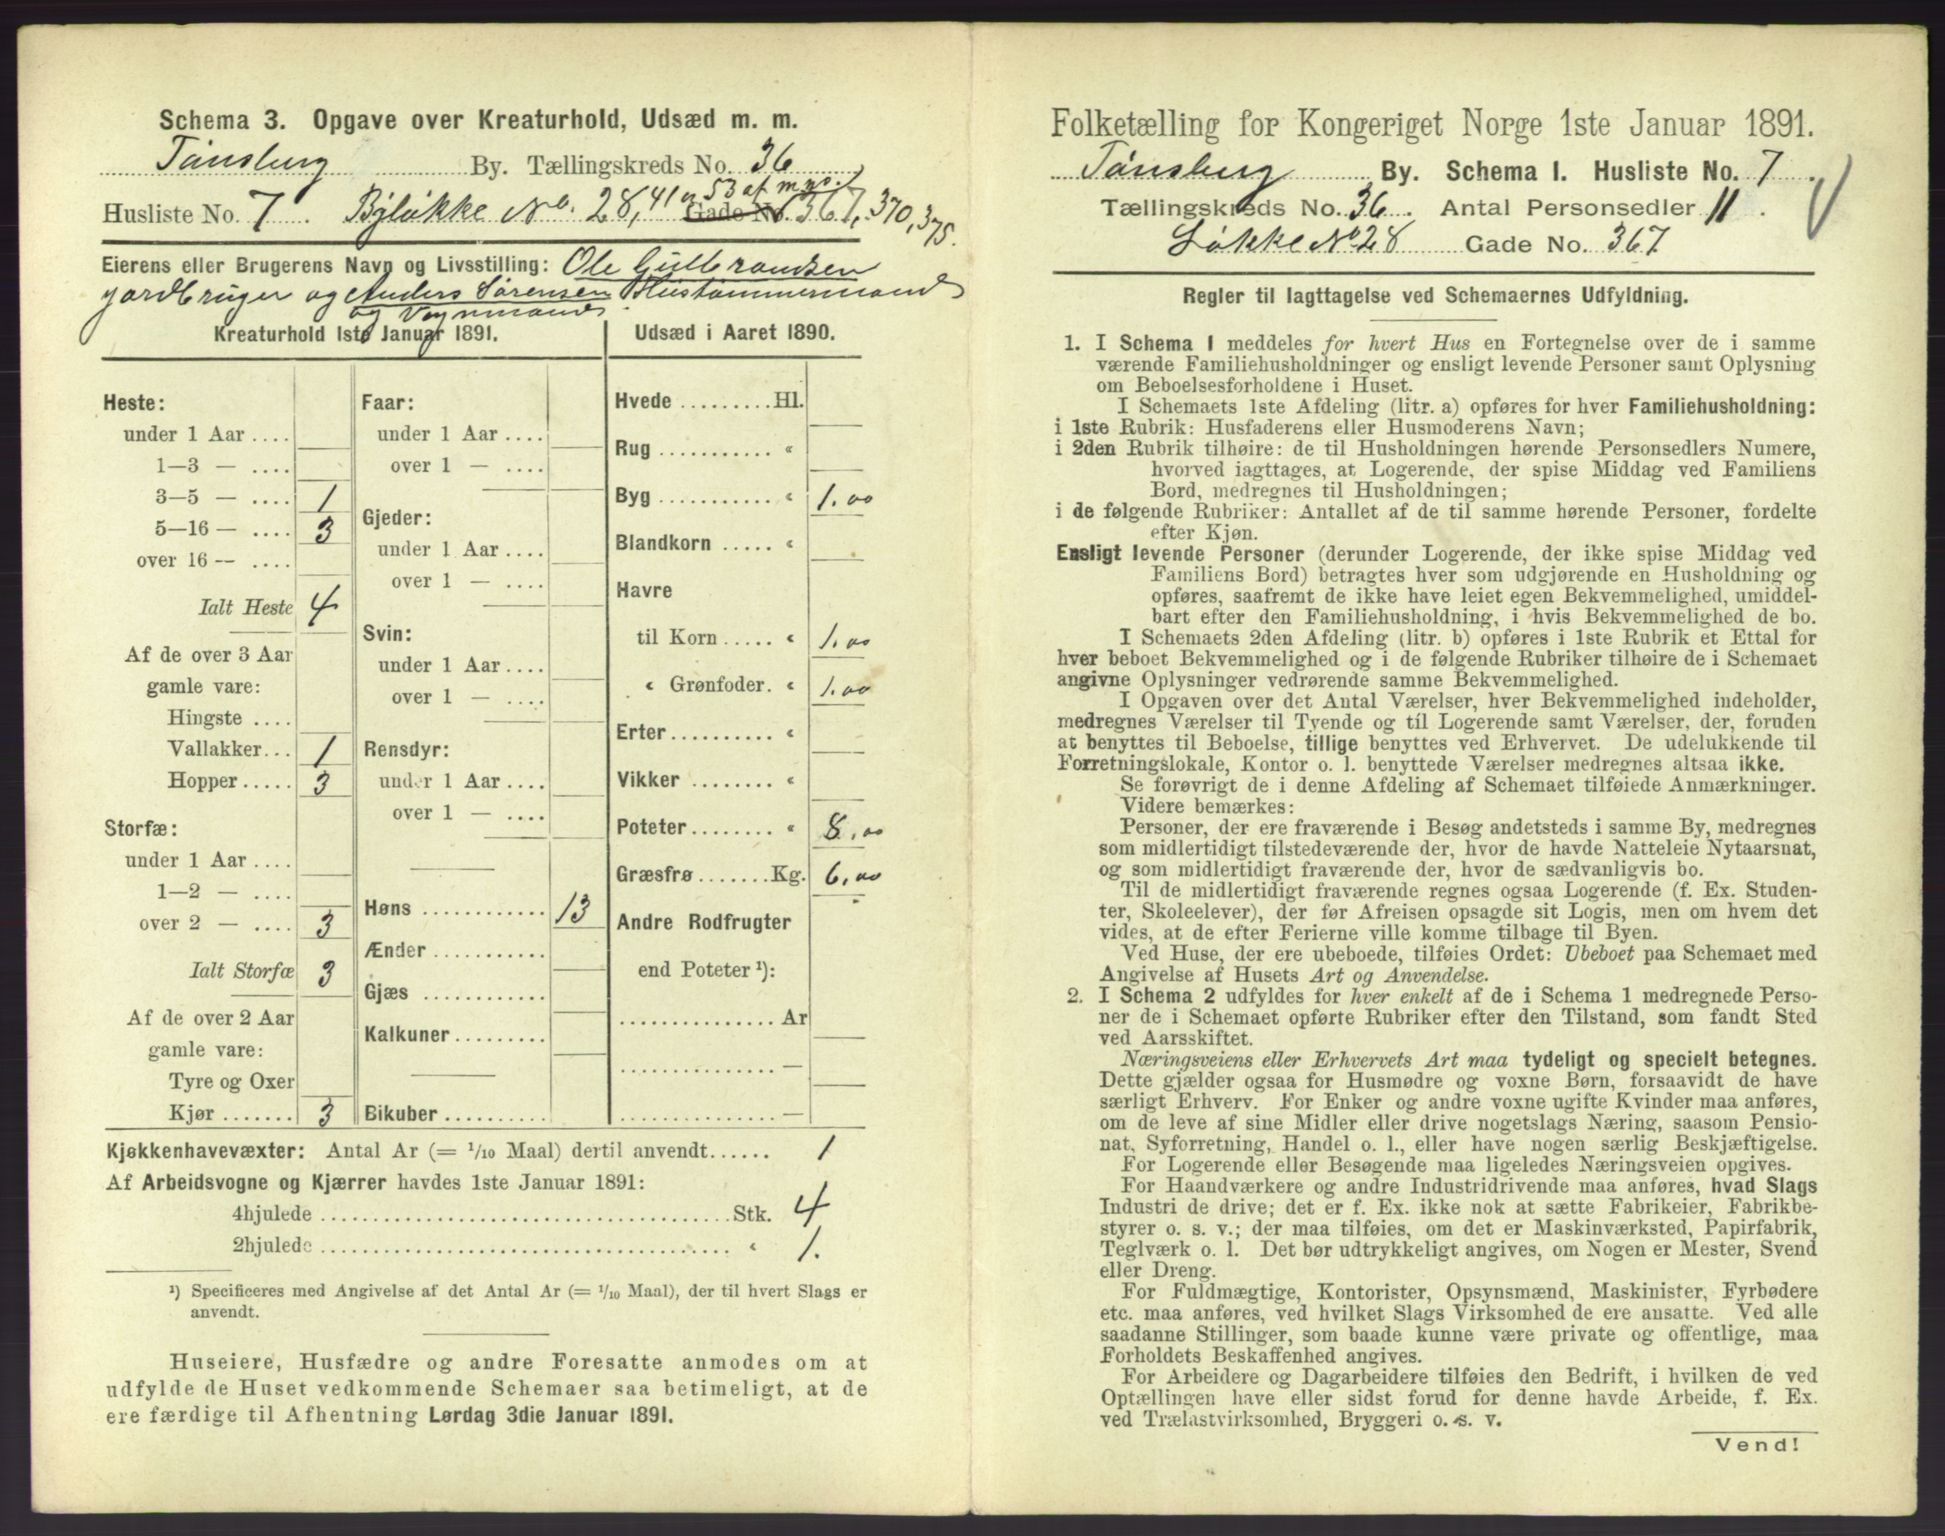 Schema 3. Opgave over Kreaturhold, Udsæd m. m.
Tønsberg By. Tællingskreds No. 36
Husliste No. 7. Byløkke No. 28, 41 og 53 af m. no. Gade No. 367, 370, 375.
Eierens eller Brugerens Navn og Livsstilling: Ole Gulbrandsen
jordbruger og Anders Sørensen Hustømmermand
og Vognmand.
Kreaturhold 1ste Januar 1891.
Heste:
under 1 Aar ....
1—3 — ....
3—5 — .... 1
5—16 — .... 3
over 16 — ....
Ialt Heste 4
Af de over 3 Aar
gamle vare:
Hingste ....
Vallakker... 1
Hopper..... 3
Storfæ:
under 1 Aar ....
1—2 — ....
over 2 — .... 3
Ialt Storfæ 3
Af de over 2 Aar
gamle vare:
Tyre og Oxer
Kjør....... 3
Faar:
under 1 Aar....
over 1 — ....
Gjeder:
under 1 Aar....
over 1 — ....
Svin:
under 1 Aar....
over 1 — ....
Rensdyr:
under 1 Aar....
over 1 — ....
Høns ........... 13
Ænder ...........
Gjæs ...........
Kalkuner.........
Bikuber..........
Udsæd i Aaret 1890.
Hvede.........Hl.
Rug........... «
Byg........... « 1.00
Blandkorn ..... «
Havre
til Korn..... « 1.00
« Grønfoder. « 1.00
Erter.......... «
Vikker ........ «
Poteter........ « 8.00
Græsfrø.......Kg. 6.00
Andre Rodfrugter
end Poteter ¹):
............... Ar
............... —
............... —
Kjøkkenhavevæxter: Antal Ar (= 1/10 Maal) dertil anvendt...... 1
Af Arbeidsvogne og Kjærrer havdes 1ste Januar 1891:
4hjulede ....................................Stk. 4
2hjulede .................................... « 1.
¹) Specificeres med Angivelse af det Antal Ar (= 1/10 Maal), der til hvert Slags er
anvendt.
Huseiere, Husfædre og andre Foresatte anmodes om at
udfylde de Huset vedkommende Schemaer saa betimeligt, at de
ere færdige til Afhentning Lørdag 3die Januar 1891.
Folketælling for Kongeriget Norge 1ste Januar 1891.
Tønsberg By. Schema I. Husliste No. 7.
Tællingskreds No. 36. Antal Personsedler 11.
Løkke No 28 Gade No. 367
Regler til Iagttagelse ved Schemaernes Udfyldning.
1. I Schema I meddeles for hvert Hus en Fortegnelse over de i samme
værende Familiehusholdninger og ensligt levende Personer samt Oplysning
om Beboelsesforholdene i Huset.
I Schemaets 1ste Afdeling (litr. a) opføres for hver Familiehusholdning:
i 1ste Rubrik: Husfaderens eller Husmoderens Navn;
i 2den Rubrik tilhøire: de til Husholdningen hørende Personsedlers Numere,
hvorved iagttages, at Logerende, der spise Middag ved Familiens
Bord, medregnes til Husholdningen;
i de følgende Rubriker: Antallet af de til samme hørende Personer, fordelte
efter Kjøn.
Ensligt levende Personer (derunder Logerende, der ikke spise Middag ved
Familiens Bord) betragtes hver som udgjørende en Husholdning og
opføres, saafremt de ikke have leiet egen Bekvemmelighed, umiddel-
bart efter den Familiehusholdning, i hvis Bekvemmelighed de bo.
I Schemaets 2den Afdeling (litr. b) opføres i 1ste Rubrik et Ettal for
hver beboet Bekvemmelighed og i de følgende Rubriker tilhøire de i Schemaet
angivne Oplysninger vedrørende samme Bekvemmelighed.
I Opgaven over det Antal Værelser, hver Bekvemmelighed indeholder,
medregnes Værelser til Tyende og til Logerende samt Værelser, der, foruden
at benyttes til Beboelse, tillige benyttes ved Erhvervet. De udelukkende til
Forretningslokale, Kontor o. l. benyttede Værelser medregnes altsaa ikke.
Se forøvrigt de i denne Afdeling af Schemaet tilføiede Anmærkninger.
Videre bemærkes:
Personer, der ere fraværende i Besøg andetsteds i samme By, medregnes
som midlertidigt tilstedeværende der, hvor de havde Natteleie Nytaarsnat,
og som midlertidigt fraværende der, hvor de sædvanligvis bo.
Til de midlertidigt fraværende regnes ogsaa Logerende (f. Ex. Studen-
ter, Skoleelever), der før Afreisen opsagde sit Logis, men om hvem det
vides, at de efter Ferierne ville komme tilbage til Byen.
Ved Huse, der ere ubeboede, tilføies Ordet: Ubeboet paa Schemaet med
Angivelse af Husets Art og Anvendelse.
2. I Schema 2 udfyldes for hver enkelt af de i Schema 1 medregnede Perso-
ner de i Schemaet opførte Rubriker efter den Tilstand, som fandt Sted
ved Aarsskiftet.
Næringsveiens eller Erhvervets Art maa tydeligt og specielt betegnes.
Dette gjælder ogsaa for Husmødre og voxne Børn, forsaavidt de have
særligt Erhverv. For Enker og andre voxne ugifte Kvinder maa anføres,
om de leve af sine Midler eller drive nogetslags Næring, saasom Pensio-
nat, Syforretning, Handel o. l., eller have nogen særlig Beskjæftigelse.
For Logerende eller Besøgende maa ligeledes Næringsveien opgives.
For Haandværkere og andre Industridrivende maa anføres, hvad Slags
Industri de drive; det er f. Ex. ikke nok at sætte Fabrikeier, Fabrikbe-
styrer o. s. v.; der maa tilføies, om det er Maskinværksted, Papirfabrik,
Teglværk o. l. Det bør udtrykkeligt angives, om Nogen er Mester, Svend
eller Dreng.
For Fuldmægtige, Kontorister, Opsynsmænd, Maskinister, Fyrbødere
etc. maa anføres, ved hvilket Slags Virksomhed de ere ansatte. Ved alle
saadanne Stillinger, som baade kunne være private og offentlige, maa
Forholdets Beskaffenhed angives.
For Arbeidere og Dagarbeidere tilføies den Bedrift, i hvilken de ved
Optællingen have eller sidst forud for denne havde Arbeide, f. Ex.
ved Trælastvirksomhed, Bryggeri o. s. v.
Vend!